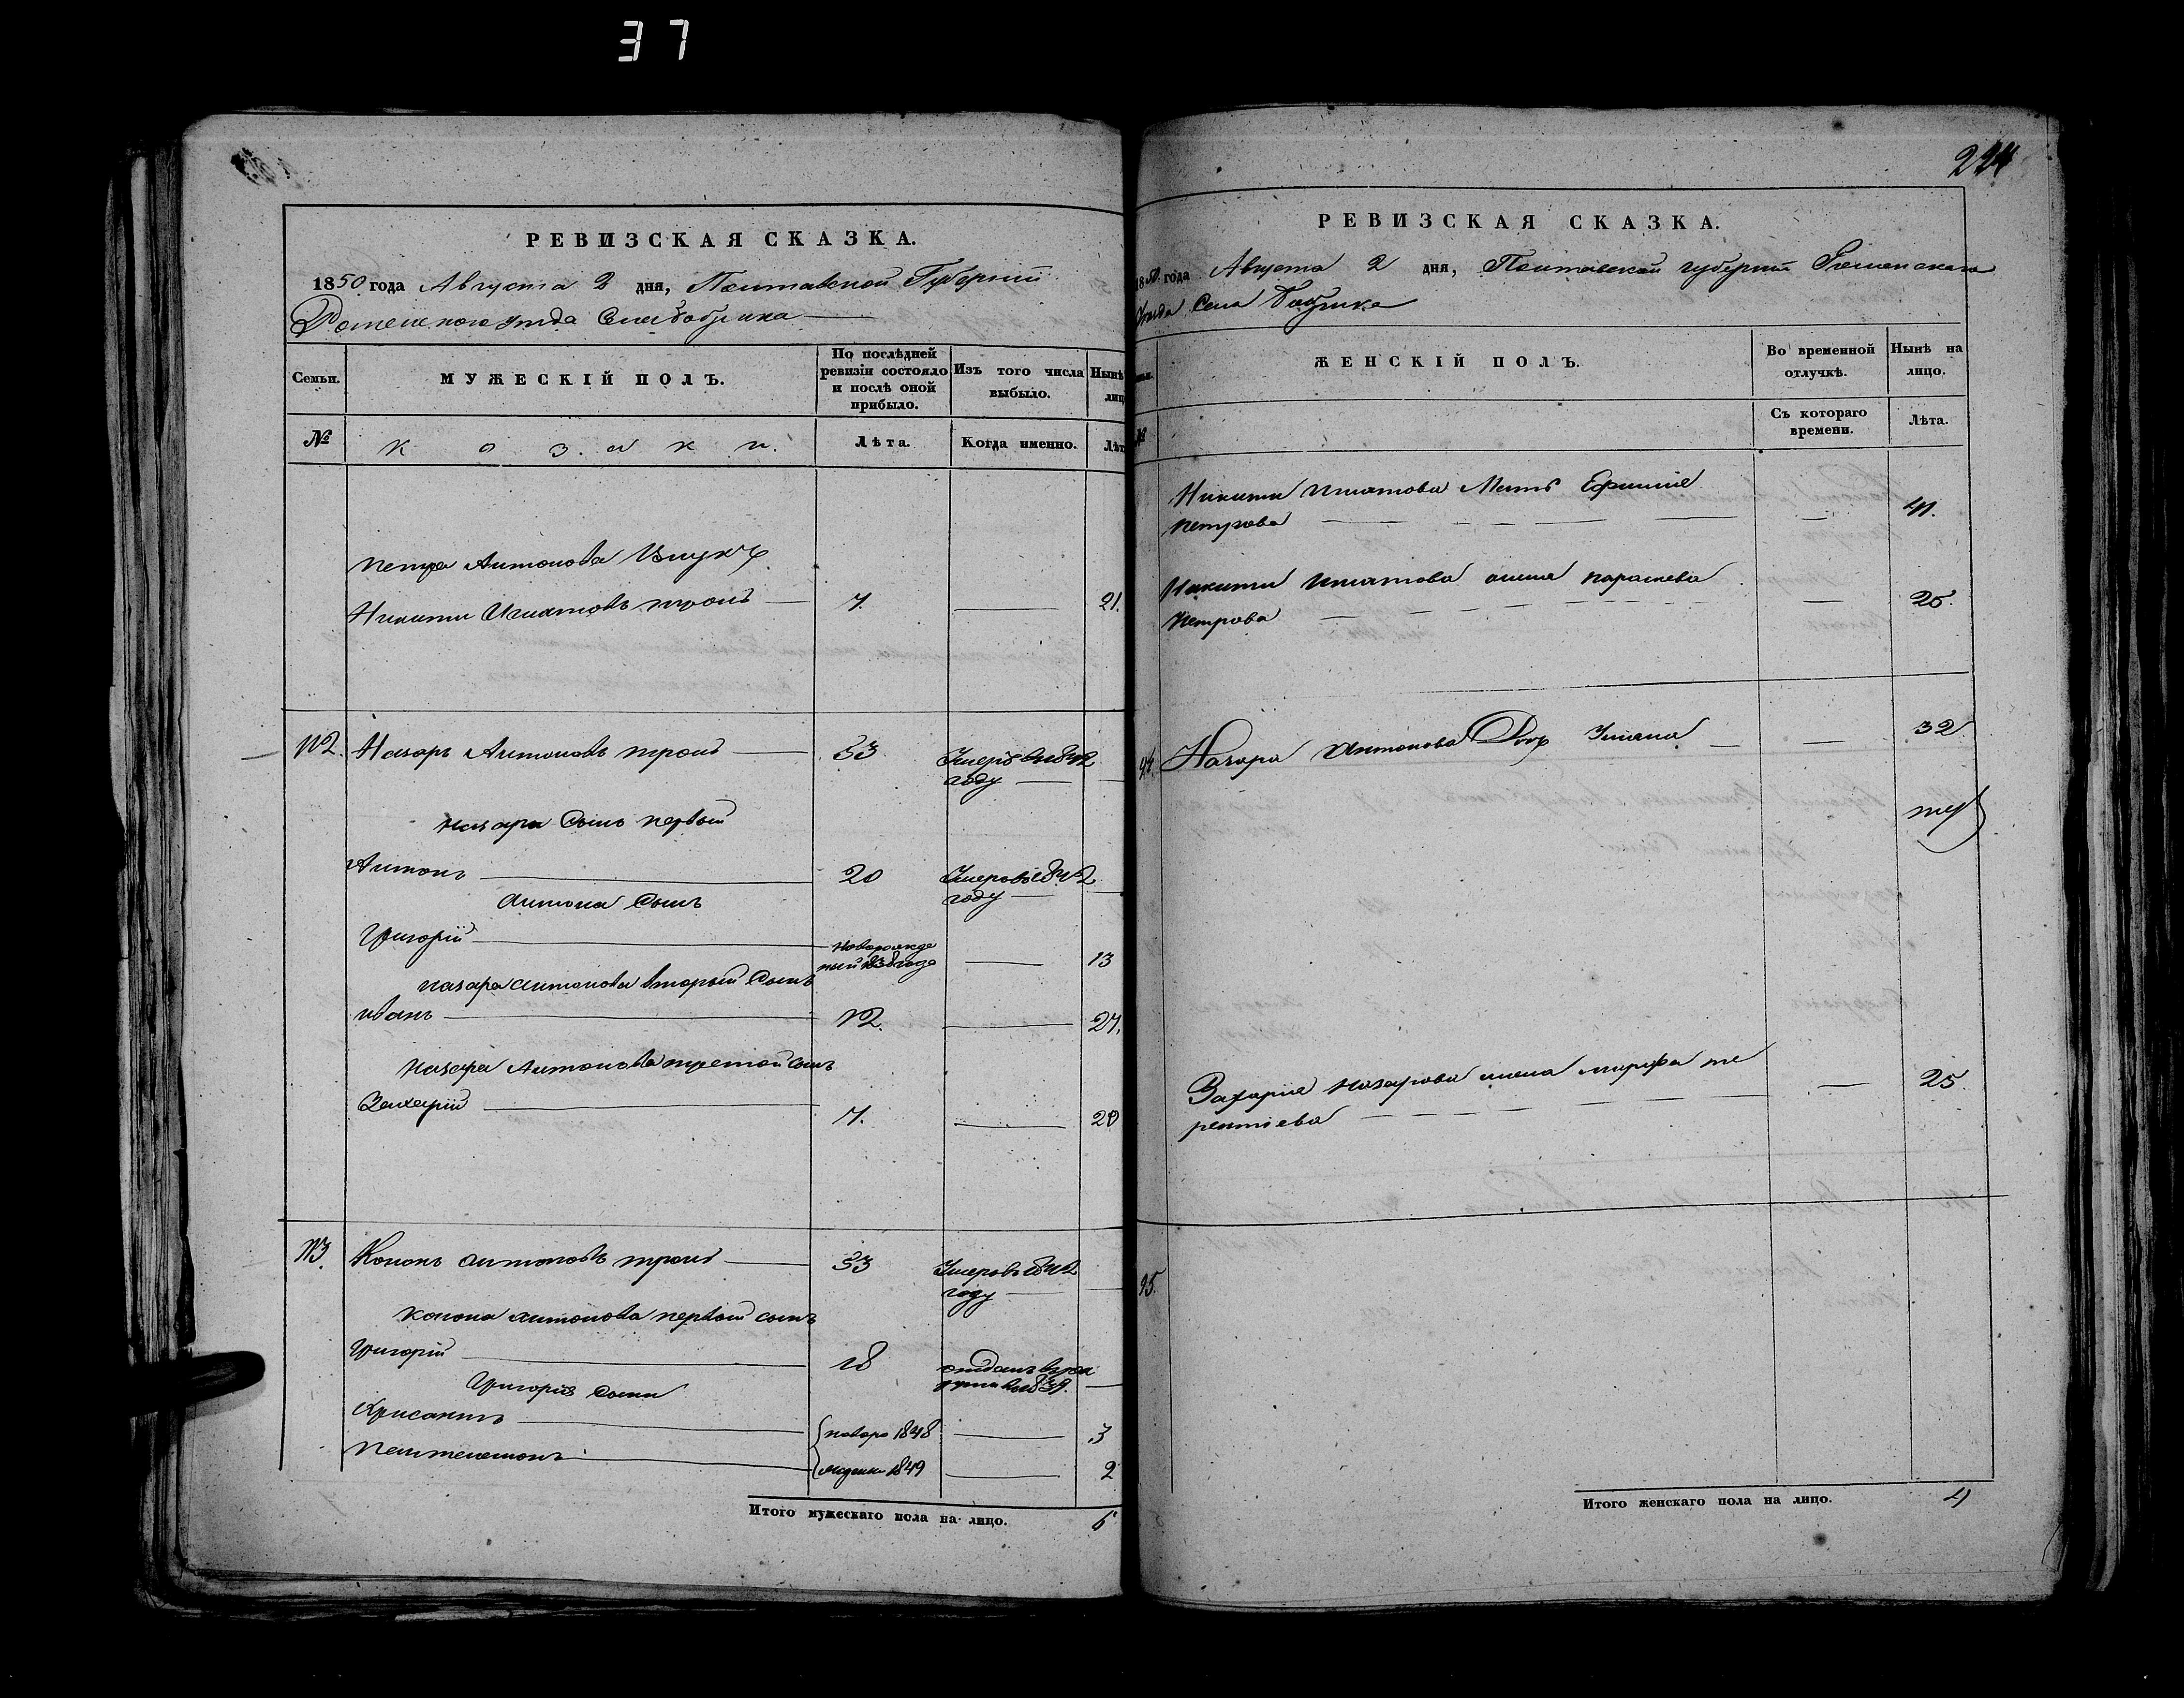 37
РЕВИЗСКАЯ СКАЗКА.
1850 года Августа 2 дня, Полтавской Губернiи
Роменского уезда Села Бобрика
Семьи.
МУЖЕСКIЙ ПОЛЪ.
По послѣдней ревизiи состояло и послѣ оной прибыло.
Изъ того числа выбыло.
Нынѣ
лиц
№
козаки.
Лѣта.
Когда именно.
Лѣт
Петра Антонова Внукъ
Никита Игнатовъ
7.
21.
112.
Назаръ Антоновъ
53
Умеръ въ 1842
году
Назара Сынъ первый
Антонъ
20
Умеръ въ 1842
году
Антона Сынъ
Григорiй
новорожде
ный 1838 года
13
Назара Антонова вторый Сынъ
Иванъ
12.
27.
Назара Антонова третой сынъ
Захарiй
7.
20
113.
Кононъ Антоновъ
53
Умеръ въ 1842
году
Конона Антонова первый сынъ
Григорiй
18
отданъ въ рек
руты въ 1839.
Григорiя Сыны
Хрисанфъ
новоро 1848
3
Пантелемонъ
1849
2
Итого мужескаго пола на лицо.
6
224
РЕВИЗСКАЯ СКАЗКА.
1850 года Августа 2 дня, Полтавской губернiи Роменскаго
Уезда Села Бобрика
ЖЕНСКIЙ ПОЛЪ.
Во временной отлучкѣ.
Нынѣ на лицо.
№
Съ котораго времени.
Лѣта.
Никиты Игнатова Мать Ефимiя
Петрова
41.
Никиты Игнатова жена Парасковiя
Петрова
25.
94.
Назара Антонова Дочь Улiяна
32
Захарiя Назарова жена Марфа Те
рентiева
25.
95.
Итого женскаго пола на лицо.
4